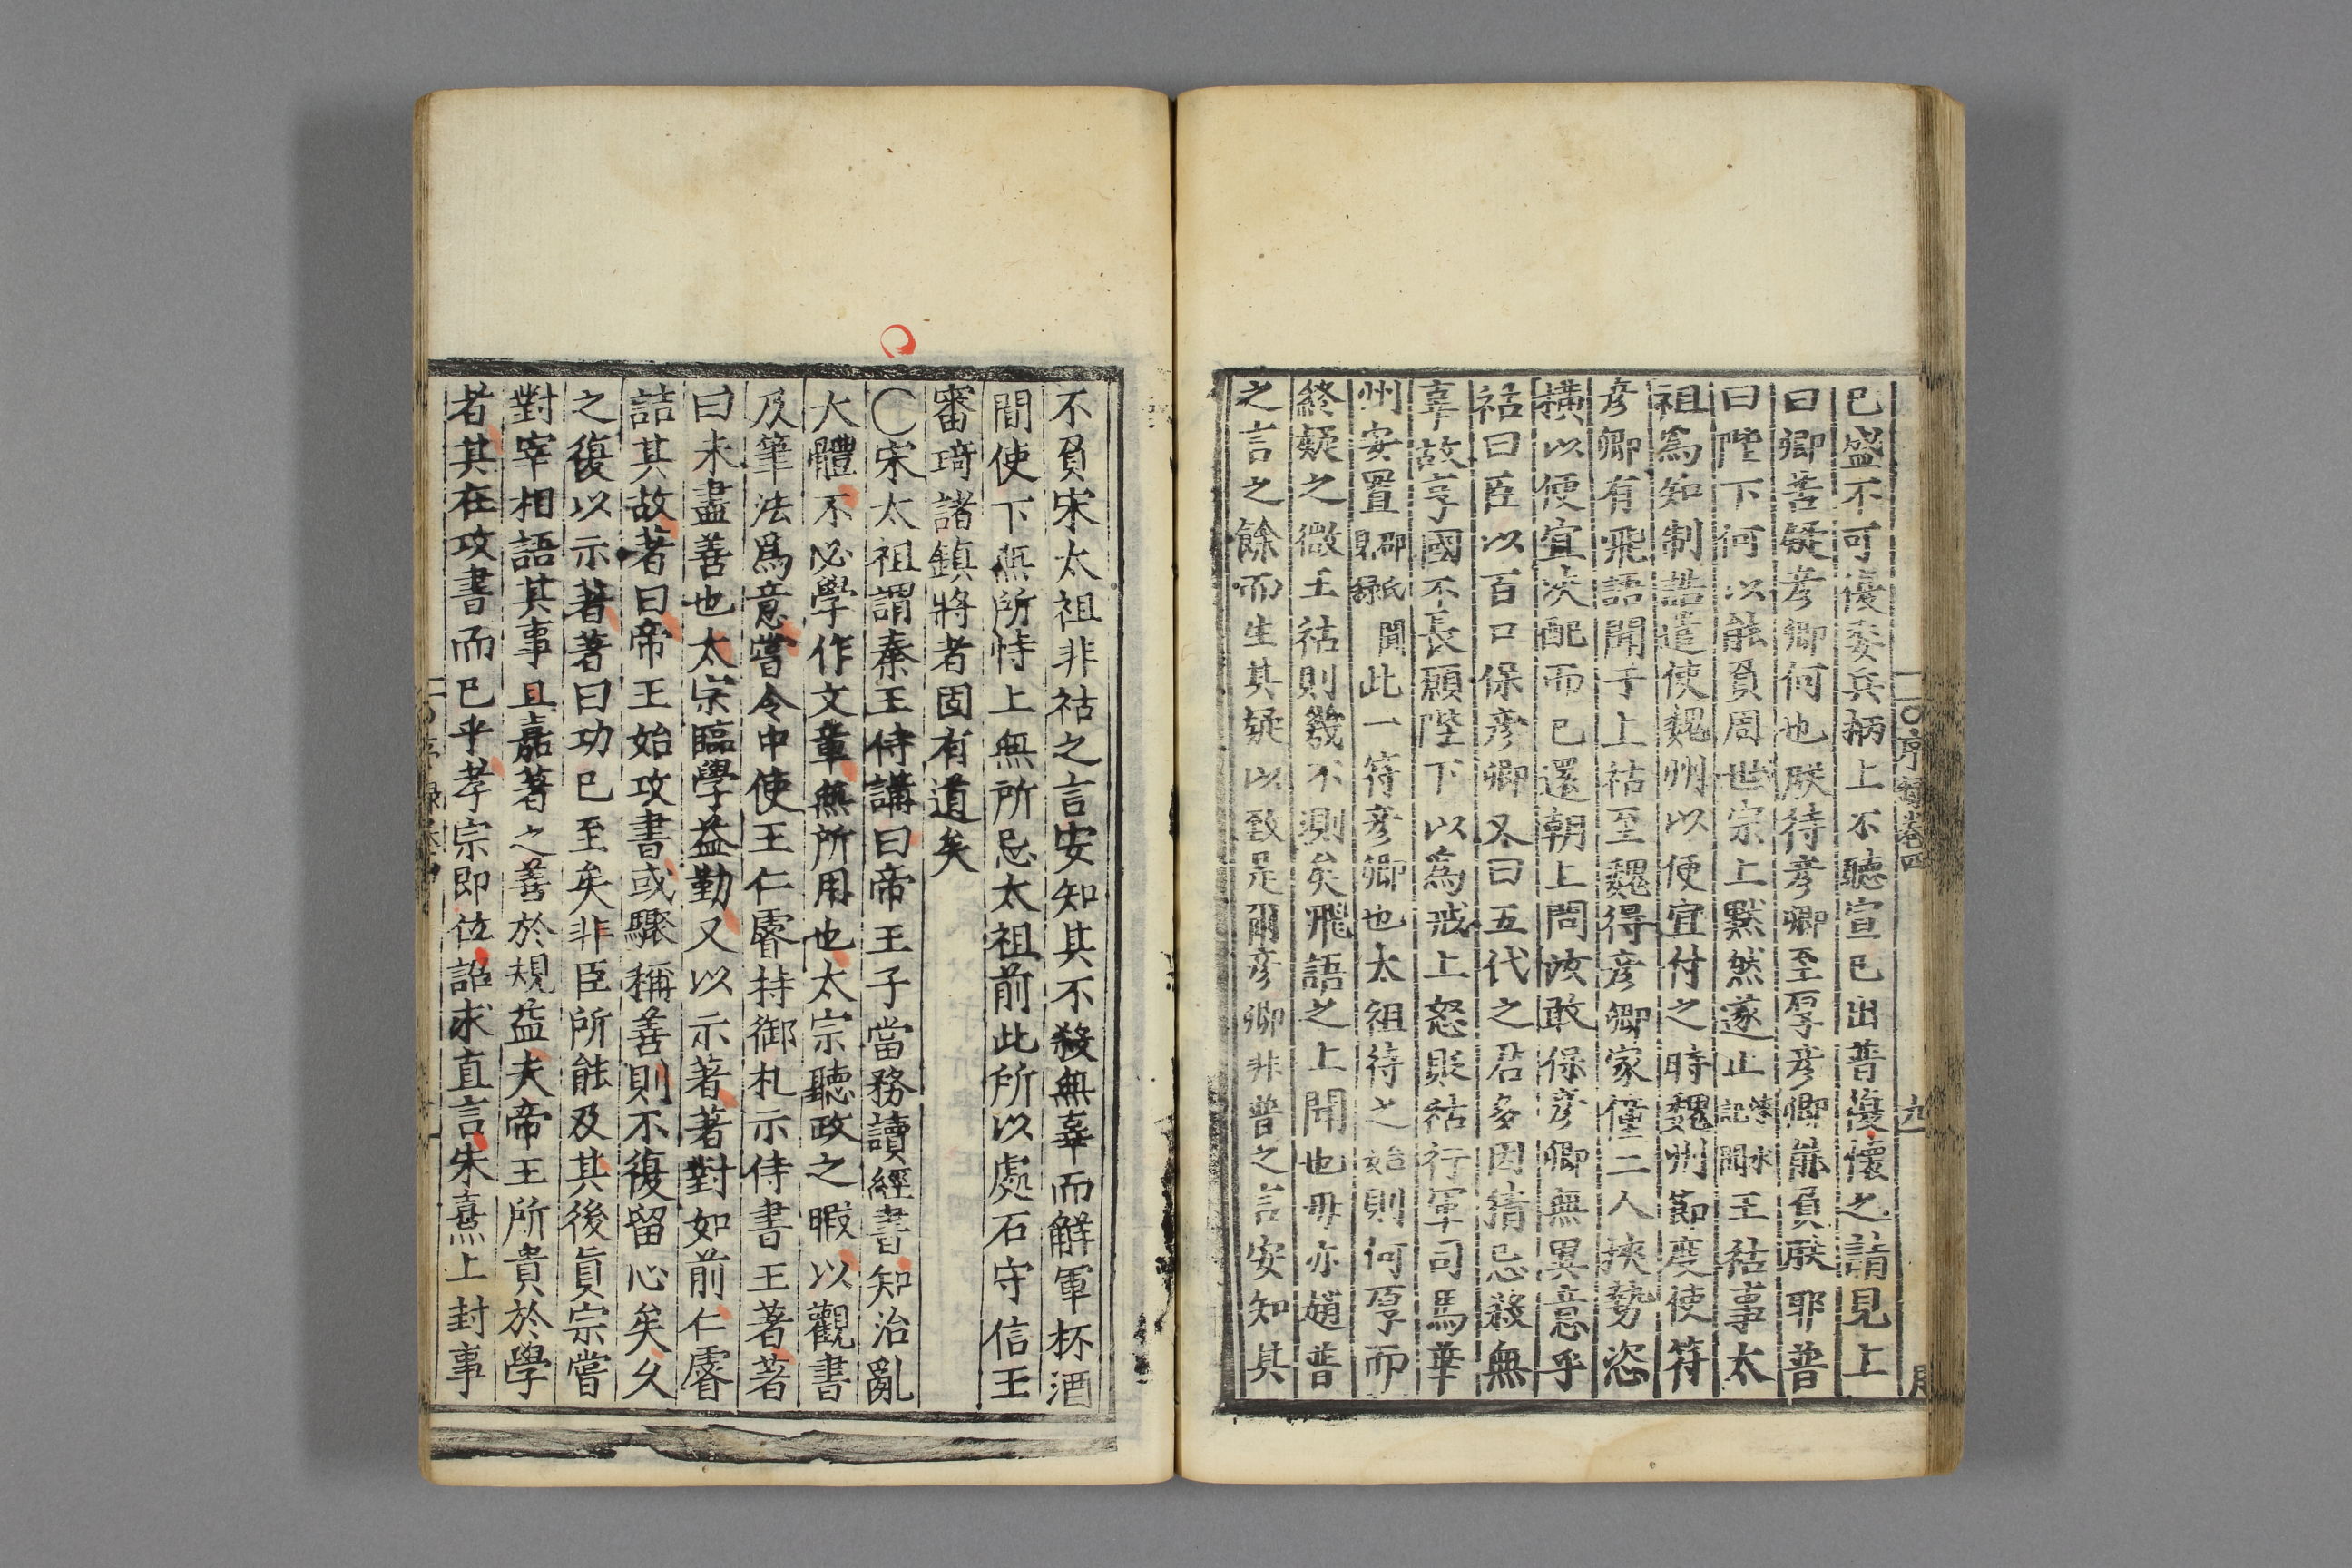 已盛不可復委兵柄上不聽宣已出普復懷之請見上
曰卿苦疑彦卿何也朕待彦卿至厚彦卿能負朕耶普
曰陛下何以能負周世宗上黙然遂止涑水記聞王祜事太
祖爲知制誥遣使魏州以便宜付之時魏州節度使符
彦卿有飛語聞于上祜至魏得彦卿家僮二人挾勢恣
横以便宜决配而已還朝上問汝敢保彦卿無異意乎
祜曰臣以百口保彦卿又曰五代之君多因猜忌殺無
辜故享國不長願陛下以爲戒上怒貶祜行軍司馬華
州安置邵氏聞見録此一符彦卿也太祖待之始則何厚而
終疑之微王祜則幾不測矣飛語之上聞也毋亦趙普
之言之餘而生其疑以致是爾彦卿非普之言安知其
不負宋太祖非祜之言安知其不殺無辜而觧軍杯酒
間使下無所恃上無所忌太祖前此所以處石守信王
審琦諸鎮將者固有道矣
〇宋太祖謂秦王侍講曰帝王子當務讀經書知治亂
大體不必學作文章無所用也太宗聽政之暇以觀書
及筆法爲意嘗令中使王仁睿持御札示侍書王著著
曰未盡善也太宗臨學益勤又以示著著對如前仁睿
詰其故著曰帝王始攻書或驟稱善則不復留心矣久
之復以示著著曰功已至矣非臣所能及其後眞宗嘗
對宰相語其事且嘉著之善於規益夫帝王所貴於學
者其在攻書而已乎孝宗即位詔求直言朱熹上封事
卷四
九